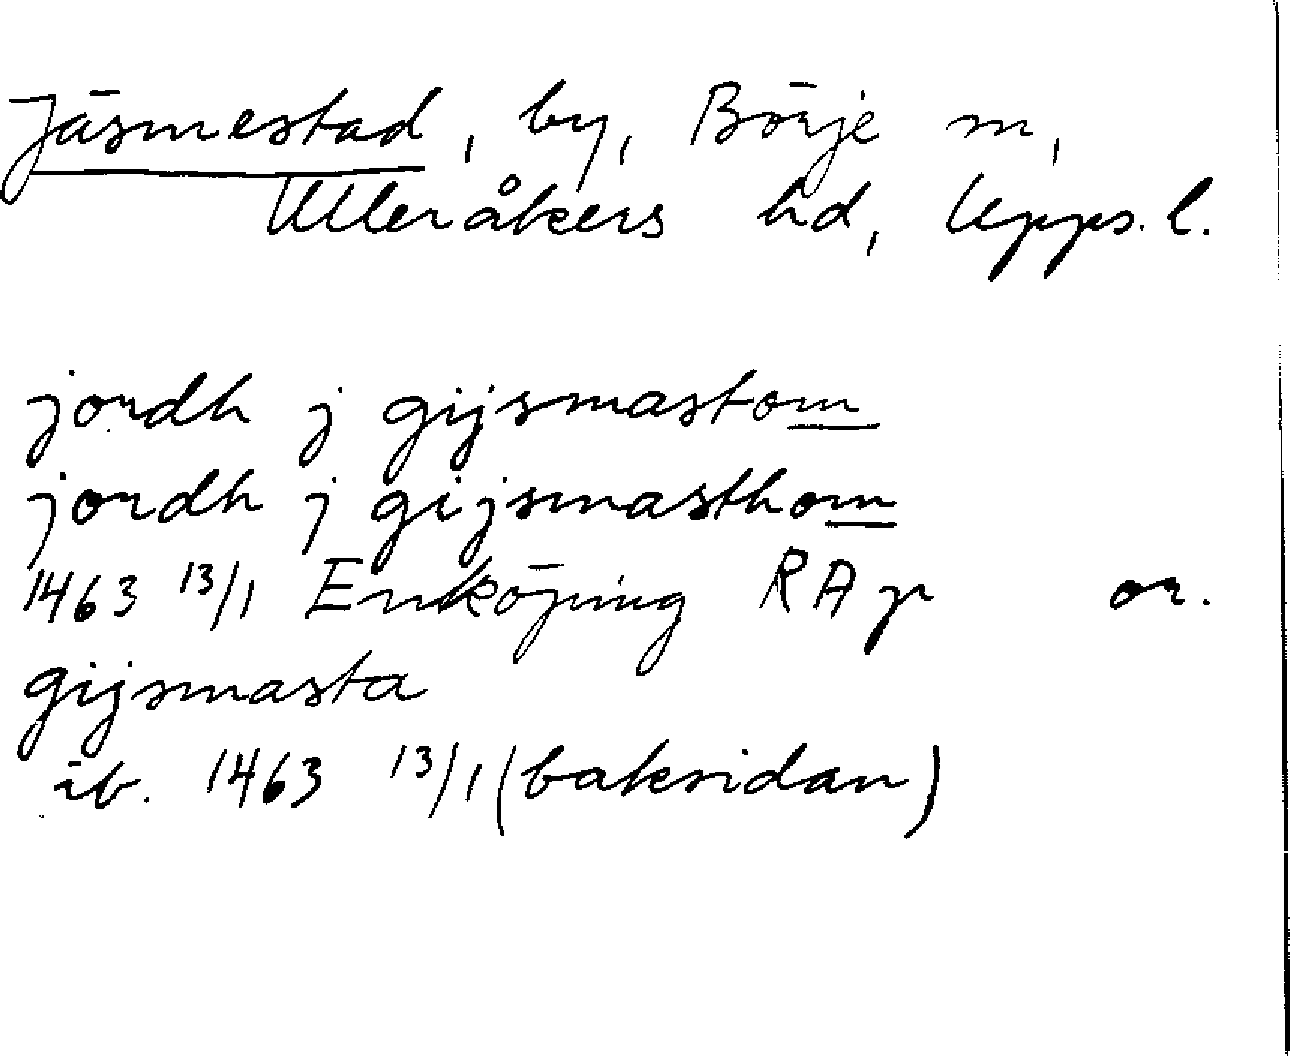 Jäsmestad, by, Börje sn,
Ulleråkers hd, Upps. l.
jordh j gijsmastom
jordh j gijsmasthom
1463 13/1 Enköping RAp or.
gijsmasta
ib. 1463 13/1 (baksidan)